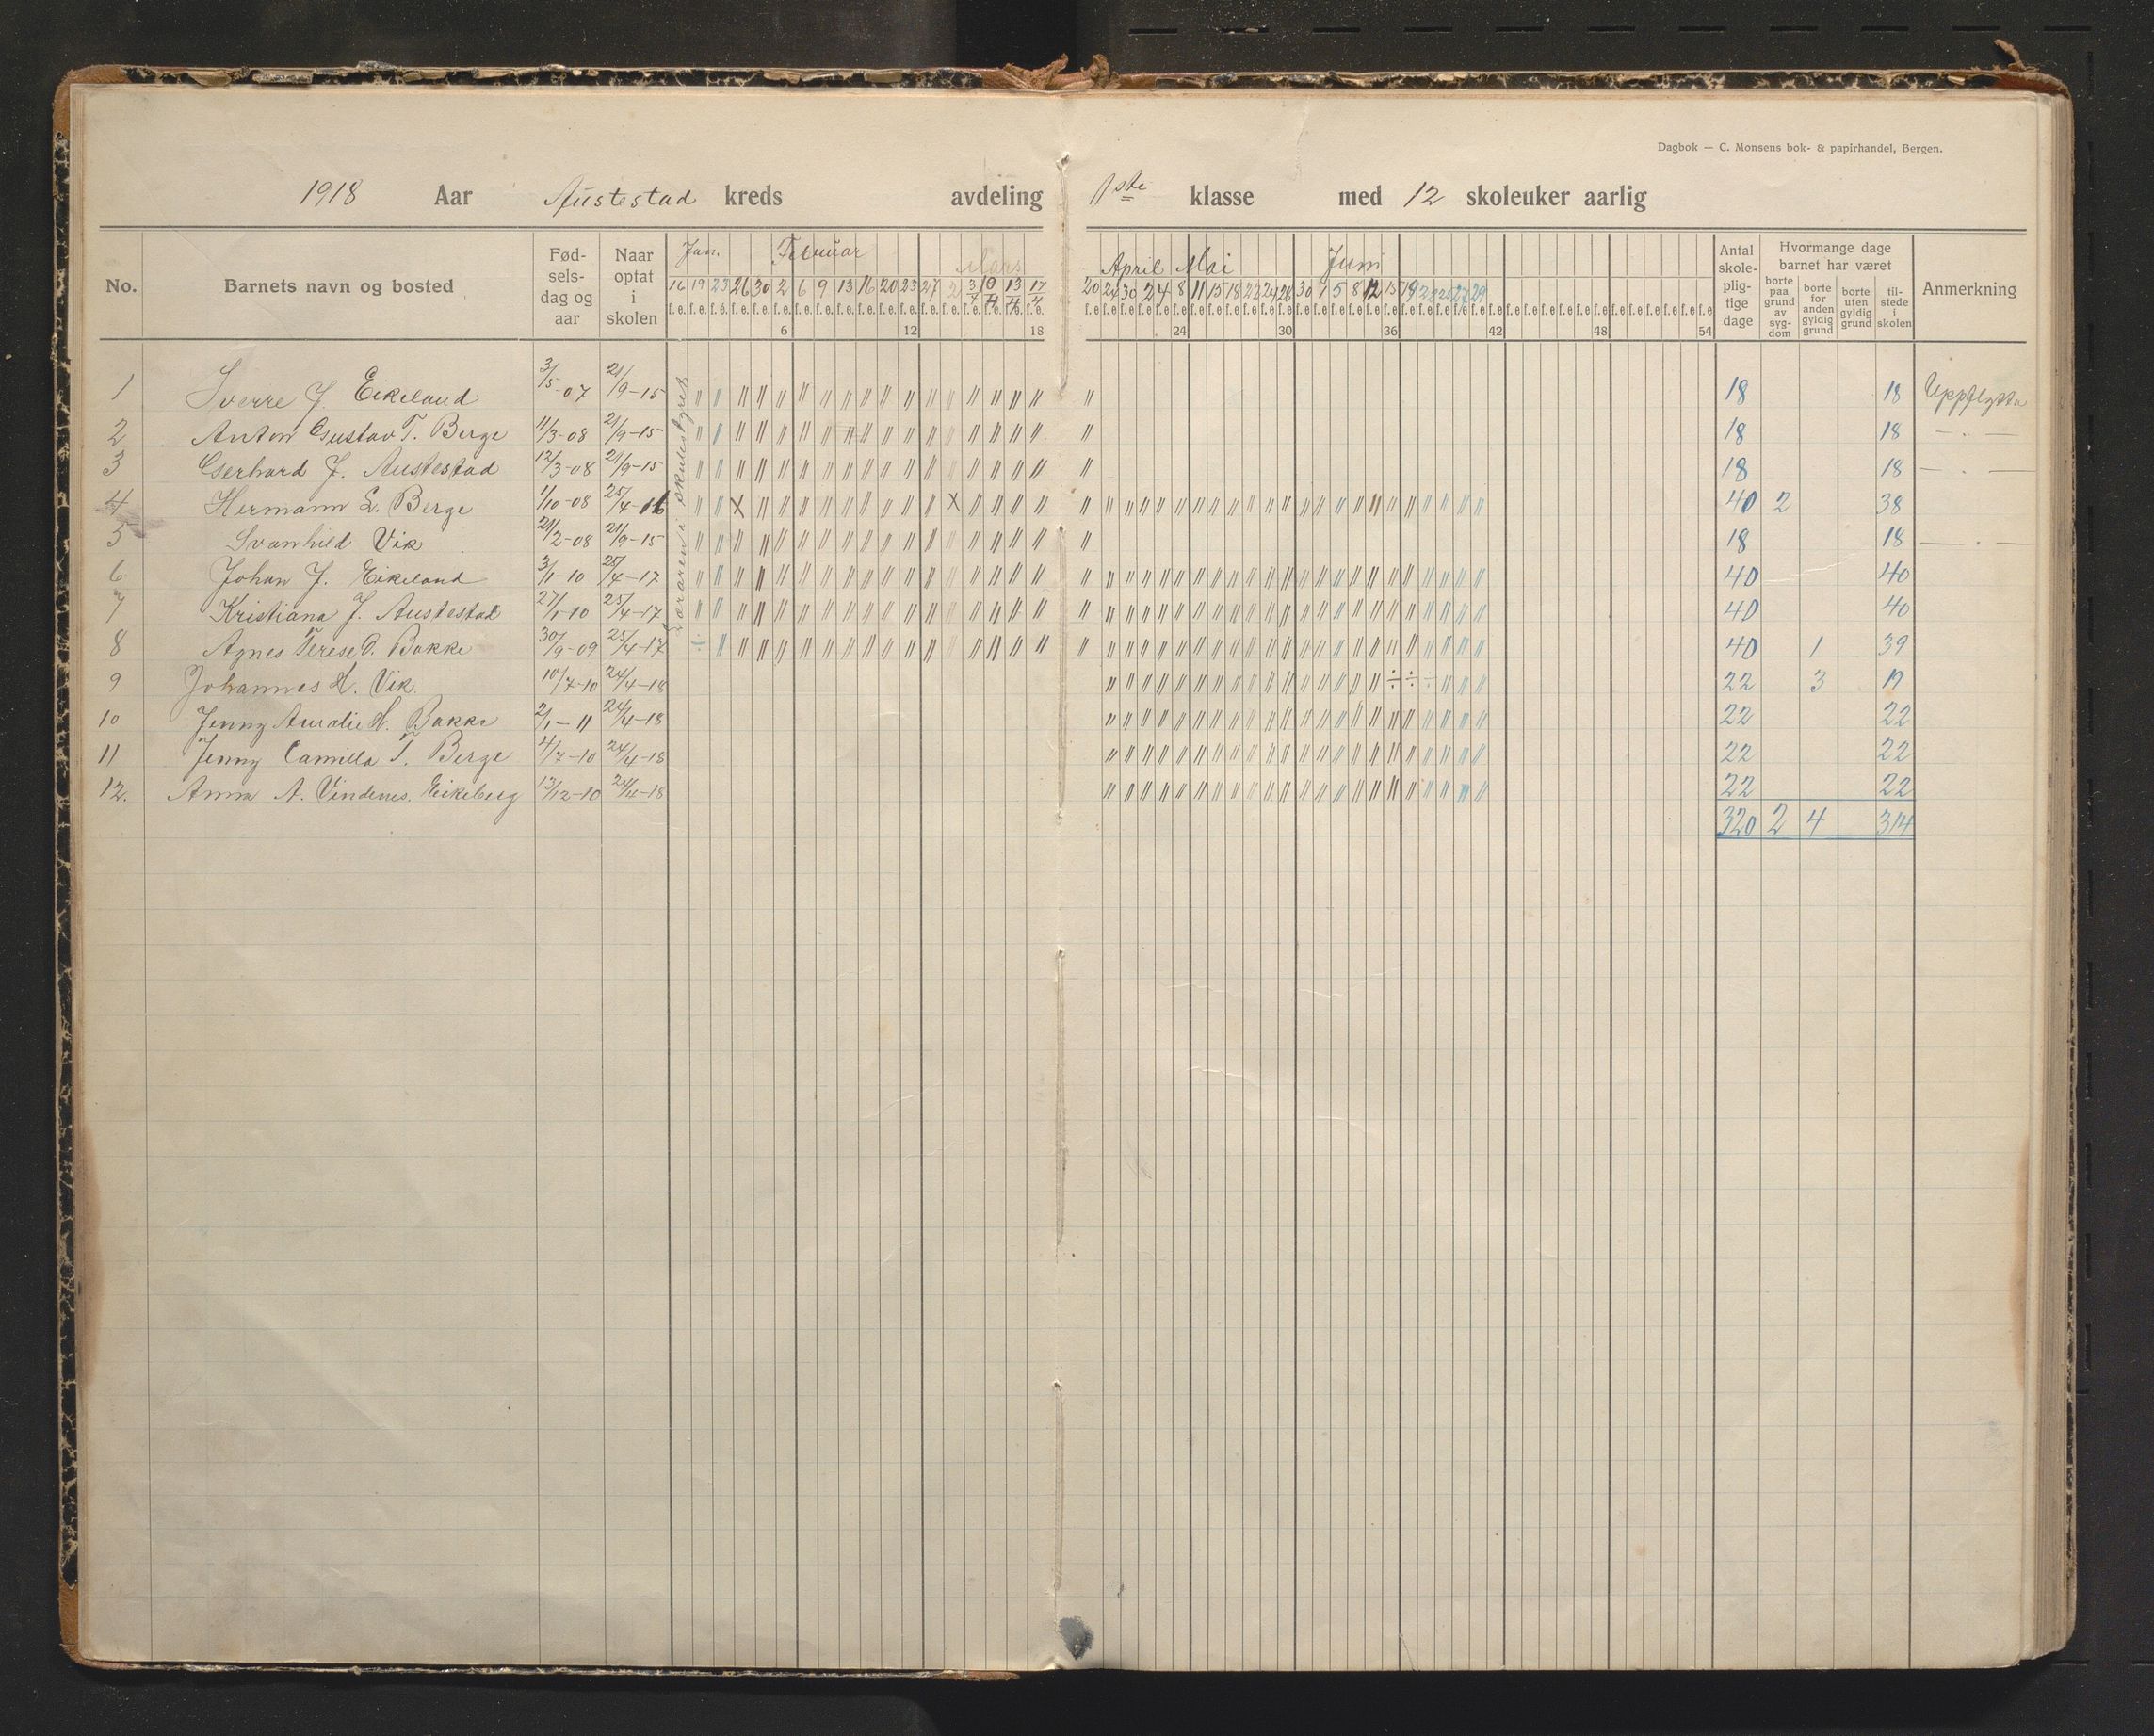 Dagbok — C. Monsens bok- & papirhandel, Bergen.
1918 Aar Austestad kreds avdeling 1ste klasse med 12 skoleuker aarlig
No. Barnets navn og bosted Fødselsdag og aar Naar optat i skolen Jan. Februar Mars April Mai Juni Antal skolepligtige dage Hvormange dage barnet har været Anmerkning
borte paa grund av sygdom borte for anden gyldig grund borte uten gyldig grund tilstede i skolen
16 19 23 26 30 2 6 9 13 16 20 23 27 2 3/4 10/4 13/4 17/4 20 24 30 2 4 8 11 15 18 22 24 28 30 1 5 8 12 15 19 22 25 27 29
6 12 18 24 30 36 42 48 54
Læraren i skulestyret
1 Sverre J. Eikeland 3/5-07 21/9-15 18 18 Uppflytta
2 Anton Gustav T. Berge 11/3-08 21/9-15 18 18 — . —
3 Gerhard J. Austestad 12/3-08 21/9-15 18 18 — . —
4 Hermann L. Berge 1/10-08 25/4-16 40 2 38
5 Svanhild Vik 21/2-08 21/9-15 18 18 — . —
6 Johan J. Eikeland 3/1-10 25/4-17 40 40
7 Kristiana J. Austestad 27/1-10 25/4-17 40 40
8 Agnes Terese O. Bakke 30/9-09 25/4-17 40 1 39
9 Johannes H. Vik. 10/7-10 24/4-18 22 3 19
10 Jenny Amalie H. Bakke 2/1-11 24/4-18 22 22
11 Jenny Camilla T. Berge 4/7-10 24/4-18 22 22
12. Anna A. Vindenes. Eikeberg 13/12-10 24/4-18 22 22
320 2 4 314